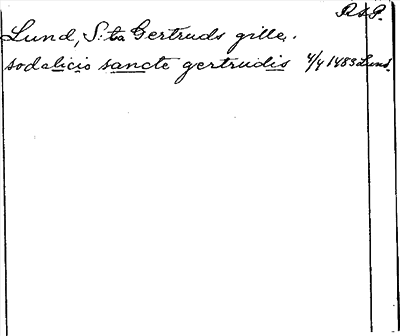 R & P.
Lund, S:ta Gertruds gille.
sodalicio sancte gertrudis 4/4 1483 Lund.